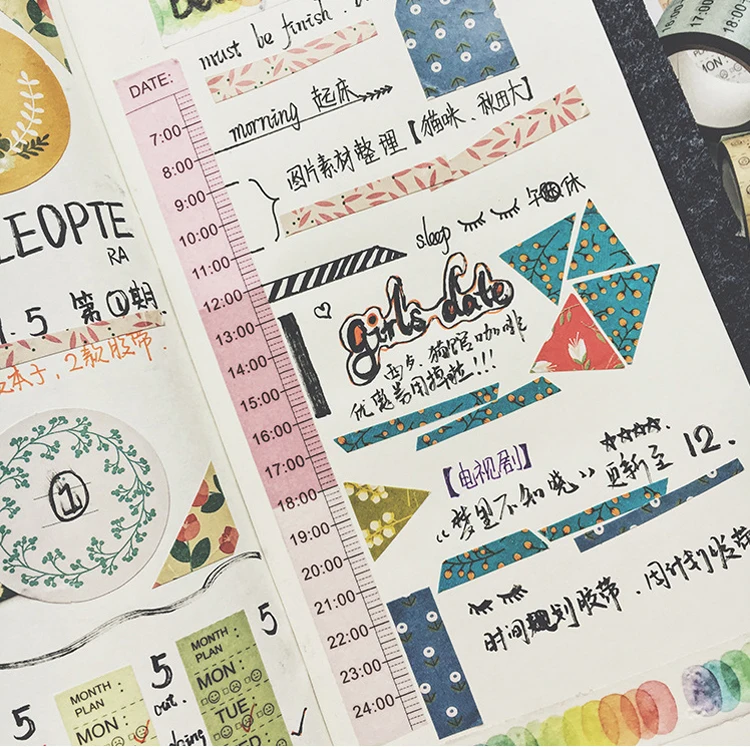 must be finish.
DATE:
morning 起床
7:00
8:00
图片素材整理【猫咪、秋田大】
9:00
10:00
sleep 午休
11:00
12:00
girls date
13:00
西夕.猫馆咖啡
14:00
优惠券用掉啦!!!
15:00
16:00
17:00
【电视剧】
18:00
《梦里不知晓》更新至 12.
19:00
20:00
21:00
时间规划胶带.周计划胶带
22:00
23:00
24:00
LEOPTE
RA
.5 第①期
本子,2款胶带.
1
5
5
5
out.
MONTH
PLAN
MON
MONTH
PLAN
MON:
TUE
16:00
17:00
18:00
MON